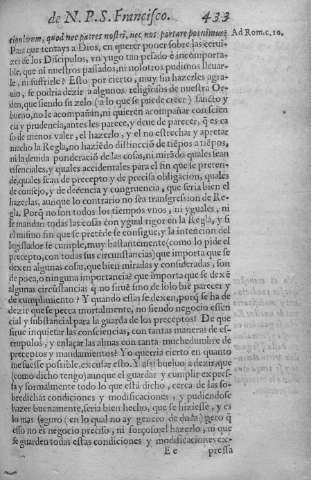 de N. P. S. Francisco. 433
ceruicem, quod nec patres nostri, nec nos portare potuimus? Ad Rom. c. 10.
Para que tentays a Dios, en querer poner sobre las cerui-
zes de los Discipulos, vn yugo tan pesado è incomporta-
ble, que ni nuestros passados, ni nosotros pudimos lleuar-
le, ni suffrirle? Esto por cierto, muy sin hazerles agra-
uio, se podria dezir a algunos religiosos de nuestra Or-
den, que siendo su zelo (a lo que se puede creer) sancto y
bueno, no le acompañan, ni quieren acompañar con scien
cia y prudencia, antes les parece, y deue de parecer, q̃ es ca
so de menos valer, el hazerlo, y el no estrechar y apretar
mucho la Regla, no haziẽdo distincciõ de tiẽpos a tiẽpos,
ni la deuida ponderaciõ de las cosas, ni mirãdo quales sean
essenciales, y quales accidentales para el fin que se preten-
de: quales sean de precepto y de precisa obligacion, quales
de consejo, y de decencia y congruencia, que seria bien el
hazerlas, aunque lo contrario no sea transgression de Re-
gla. Porq̃ no son todos los tiempos vnos, ni yguales, ni
se mandan todas las cosas con ygual rigor en la Regla, y si
el mismo fin que se pretẽde se consigue, y la intencion del
legislador se cumple, muy bastantemente (como lo pide el
precepto, con todas sus circunstancias) que importa que se
dexen algunas cosas, que bien miradas y consideradas, son
de poca, o ninguna importancia? que importa que se dexẽ
algunas circunstãcias q̃ no siruẽ sino de solo biẽ parecer y
de cumplimiento? Y quando essas se dexen, porq̃ se ha de
dezir que se pecca mortalmente, no siendo negocio essen
cial y substancial para la guarda de los preceptos? De que
sirue inquietar las consciencias, con tantas maneras de es-
crupulos, y enlaçar las almas con tanta muchedumbre de
preceptos y mandamientos? Yo querria cierto en quanto
me fuesse possible, excusar esto. Y assi bueluo a dezir, que
(como dicho tengo) aunque el guardar y cumplir expres-
sa y formalmente todo lo que està dicho, cerca de las so-
bredichas condiciones y modificaciones, y pudiendose
hazer buenamente, seria bien hecho, que se hiziesse, y es
lo mas seguro (en lo qual no ay genero de duda) pero q̃
esso no es negocio preciso, ni forçoso, el hazerlo, ni que
se guarden todas estas condiciones y modificaciones ex-
E e pressa